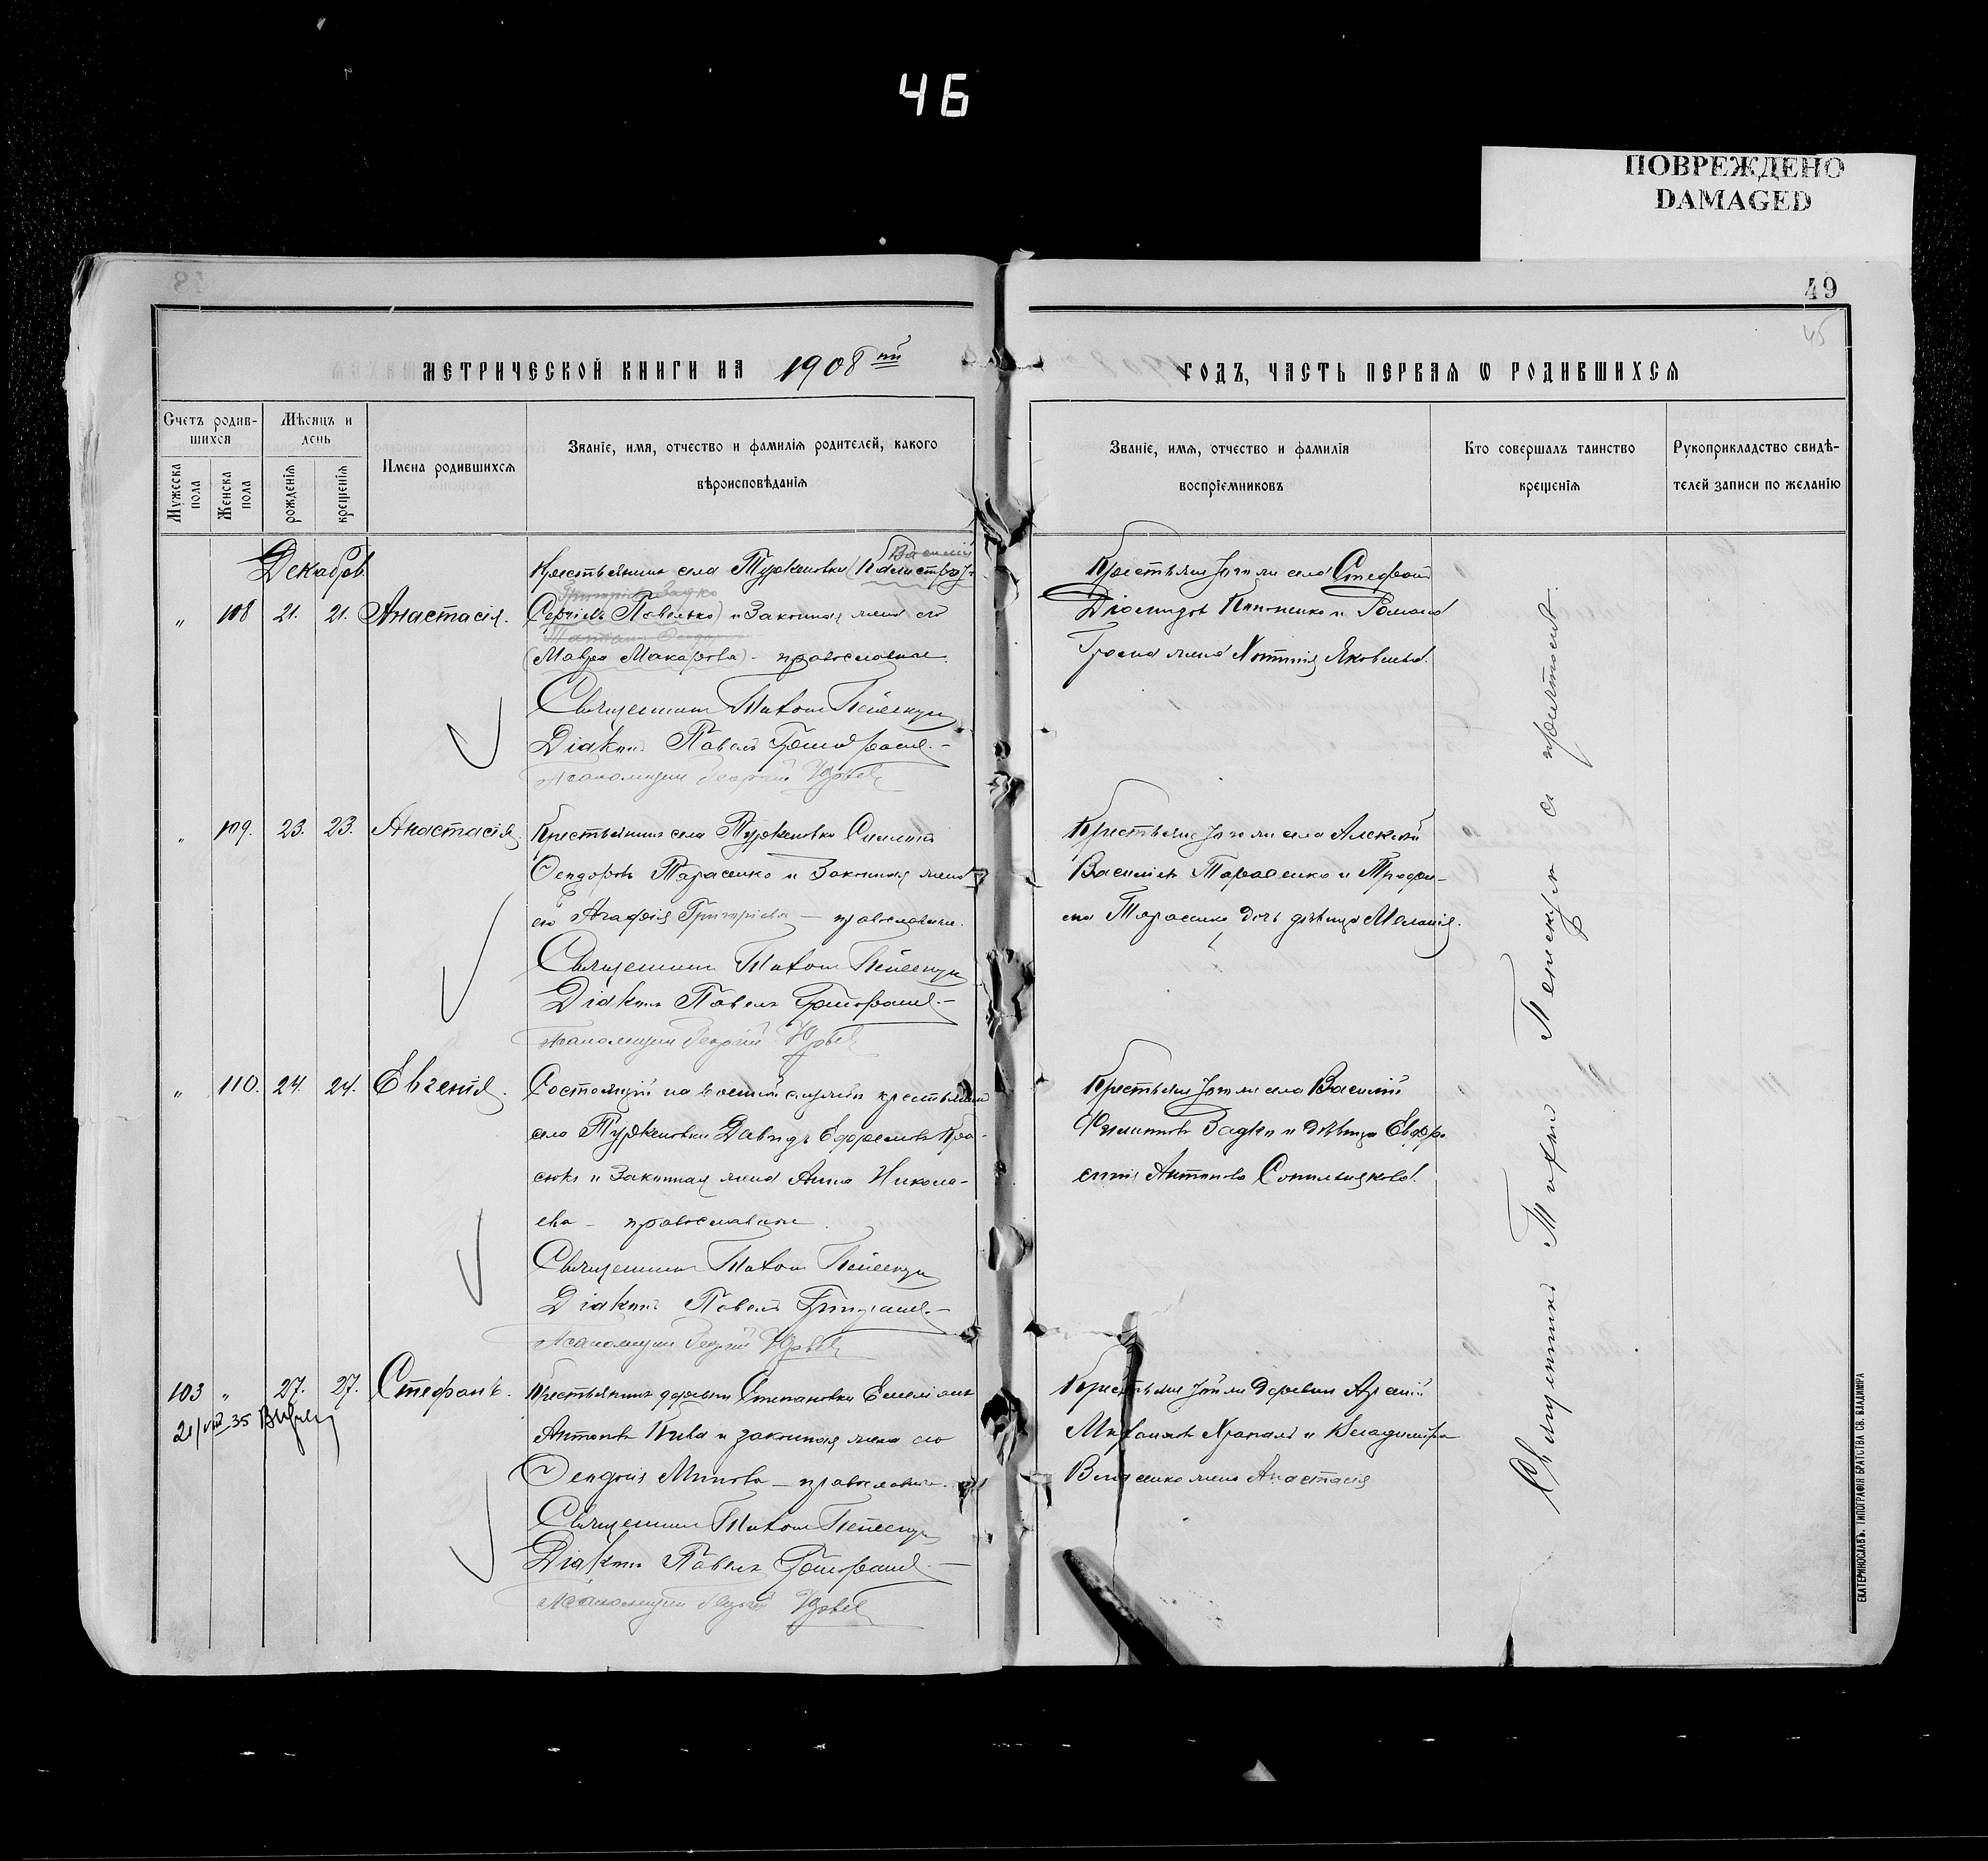 46
ПОВРЕЖДЕНО
DAMAGED
49
45
МЕТРИЧЕСКОЙ КНИГИ НА 1908 ый
ГОДЪ, ЧАСТЬ ПЕРВАЯ Ѡ РОДИВШИХСЯ
Счетъ родив-
шихся
Мѣсяцъ и
день
Мужеска
пола
Женска
пола
рожденія
крещенія
Имена родившихся
Званіе, имя, отчество и фамилія родителей, какого
вѣроисповѣданія
Званіе, имя, отчество и фамилія
воспріемниковъ
Кто совершалъ таинство
крещенія
Рукоприкладство свидѣ-
телей записи по желанію
Декабрь
Василій
Крестьянинъ села Туркеновки (Калистратъ
Григоріевъ Задко
„ 108 21. 21. Анастасія. Сергіевъ Павелко) и законная жена его
(Мавра Макарова) - православные.
Священникъ Тихонъ
Діаконъ Павелъ
Псаломщикъ Георгій
Крестьяне того же села Стефанъ
Діомидовъ и Романа
жена Яковлева.
„ 109. 23. 23. Анастасія. Крестьянинъ села Туркеновки
Ѳеодоровъ Тарасенко и законная жена
его Агафія Григоріева - православные.
Священникъ Тихонъ
Діаконъ Павелъ
Псаломщикъ Георгій
Крестьяне того же села Алексій
Василіевъ Тарасенко и Трофи-
ма Тарасенко дочь дѣвица Меланія.
„ 110. 24. 24. Евгенія. Состоящій на военной службѣ крестьянинъ
села Туркеновки Давидъ Ефремовъ Кра-
сюкъ и законная жена Анна Никола-
ева - православные.
Священникъ Тихонъ
Діаконъ Павелъ
Псаломщикъ Георгій
Крестьяне того же села Василій
Филипповъ Задко и дѣвица Евфро-
синія Антонова
103 „ 27. 27. Стефанъ. Крестьянинъ деревни Степановки Емеліанъ
35
Антоновъ Кива и законная жена его
Ѳеодосія Минова - православные.
Священникъ Тихонъ
Діаконъ Павелъ
Псаломщикъ Георгій
Крестьяне той же деревни
Михаиловъ и Владиміра
жена Анастасія
Священникъ Тихонъ
ЕКАТЕРИНОСЛАВЪ. ТИПОГРАФІЯ БРАТСТВА СВ. ВЛАДИМІРА